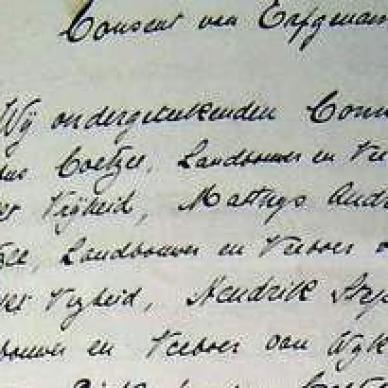 Consent van Erfgenam
Wij ondergeteekenden Corn
us Coetzee, Landbouwer en Vee
Vrijheid, Matthys Andr
zee, Landbouwer en Veeboer
Vryheid, Hendrik Step
bouwer en Veeboer van Wyk